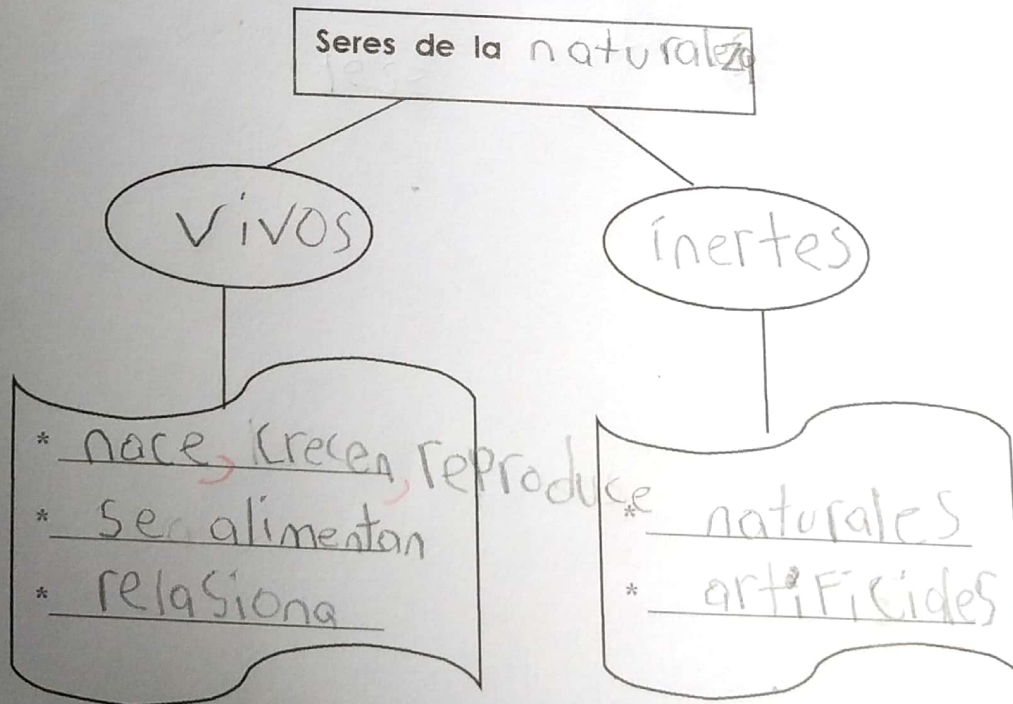 Seres de la naturaleza
vivos
inertes
* nace, crecen, reproduce
* se alimentan
* relasiona
* naturales
* artificiales